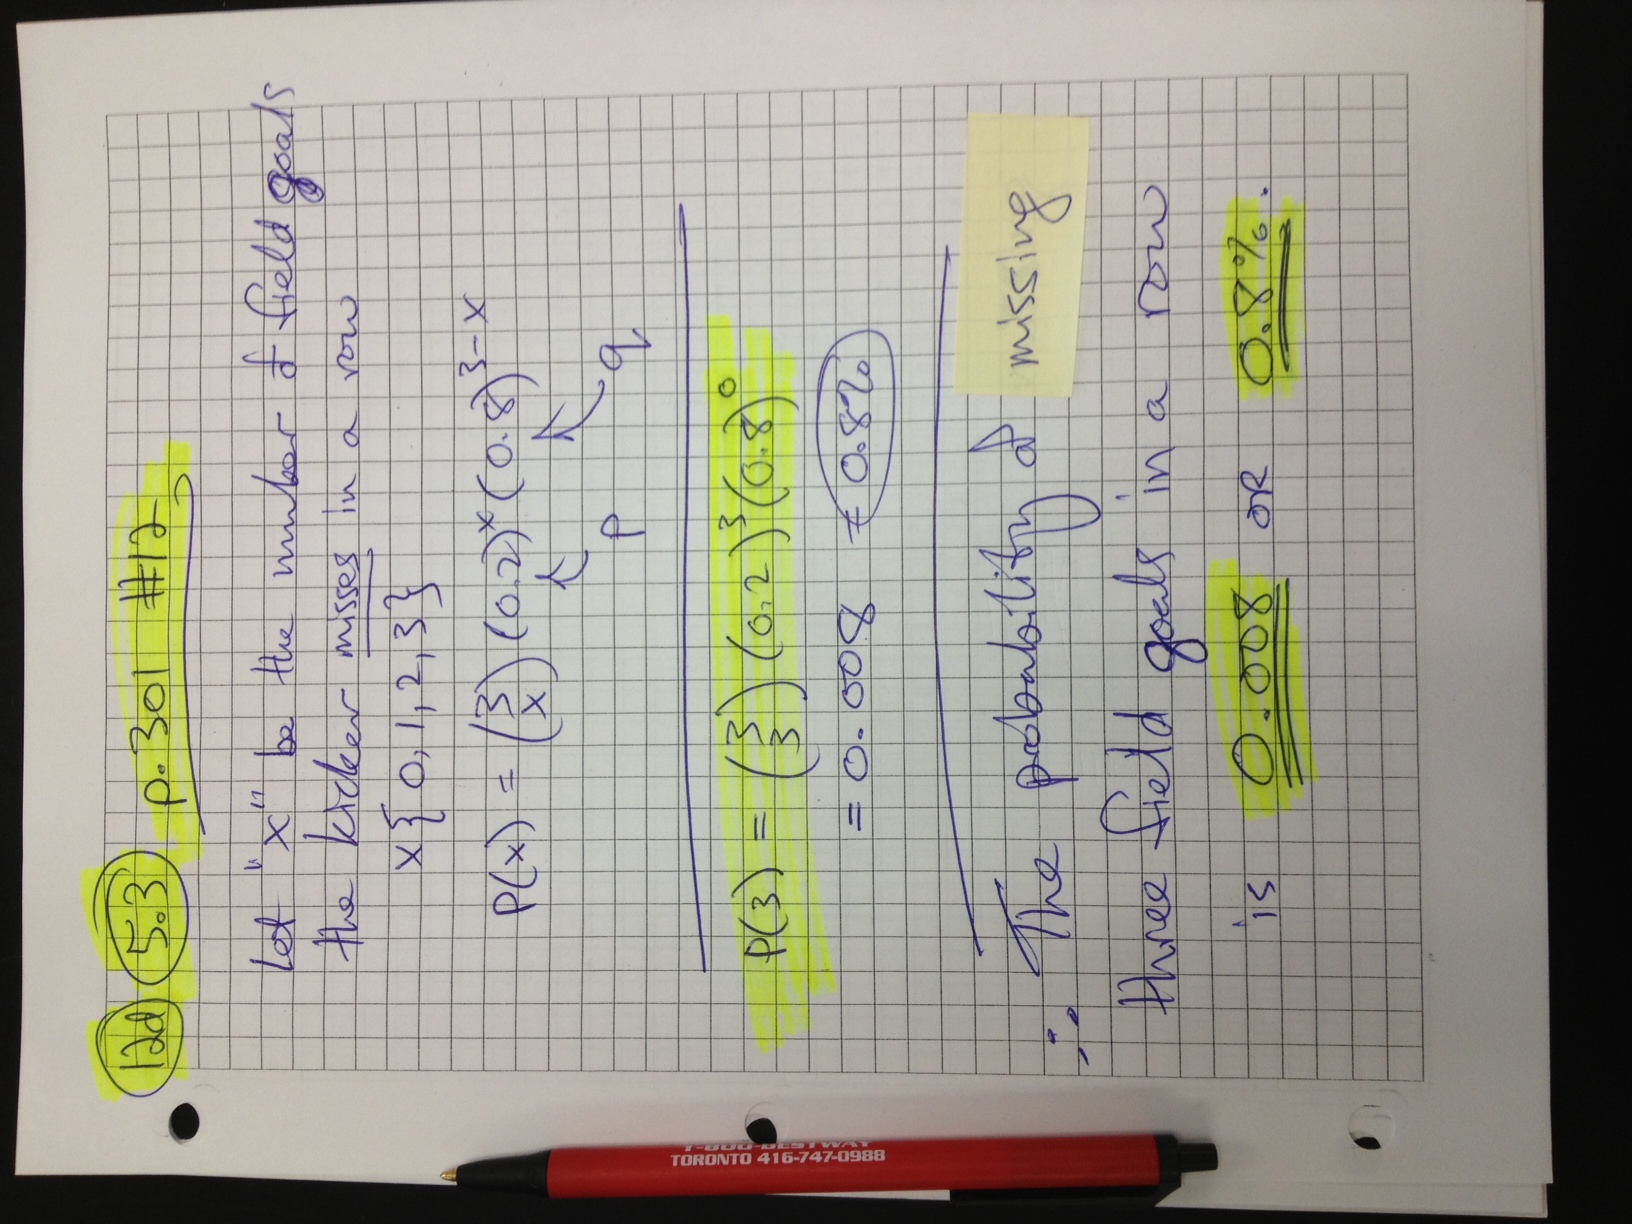 12d 5.3 p.301 #12
Let "x" be the number of field goals
the kicker misses in a row
x{0,1,2,3}
P(x) = (3 x)(0.2)^x(0.8)^3-x
p q
P(3) = (3 3)(0.2)^3(0.8)^0
= 0.008 = 0.8%
∴ The probability of missing
three field goals in a row
is 0.008 OR 0.8%.
TORONTO 416-747-0988